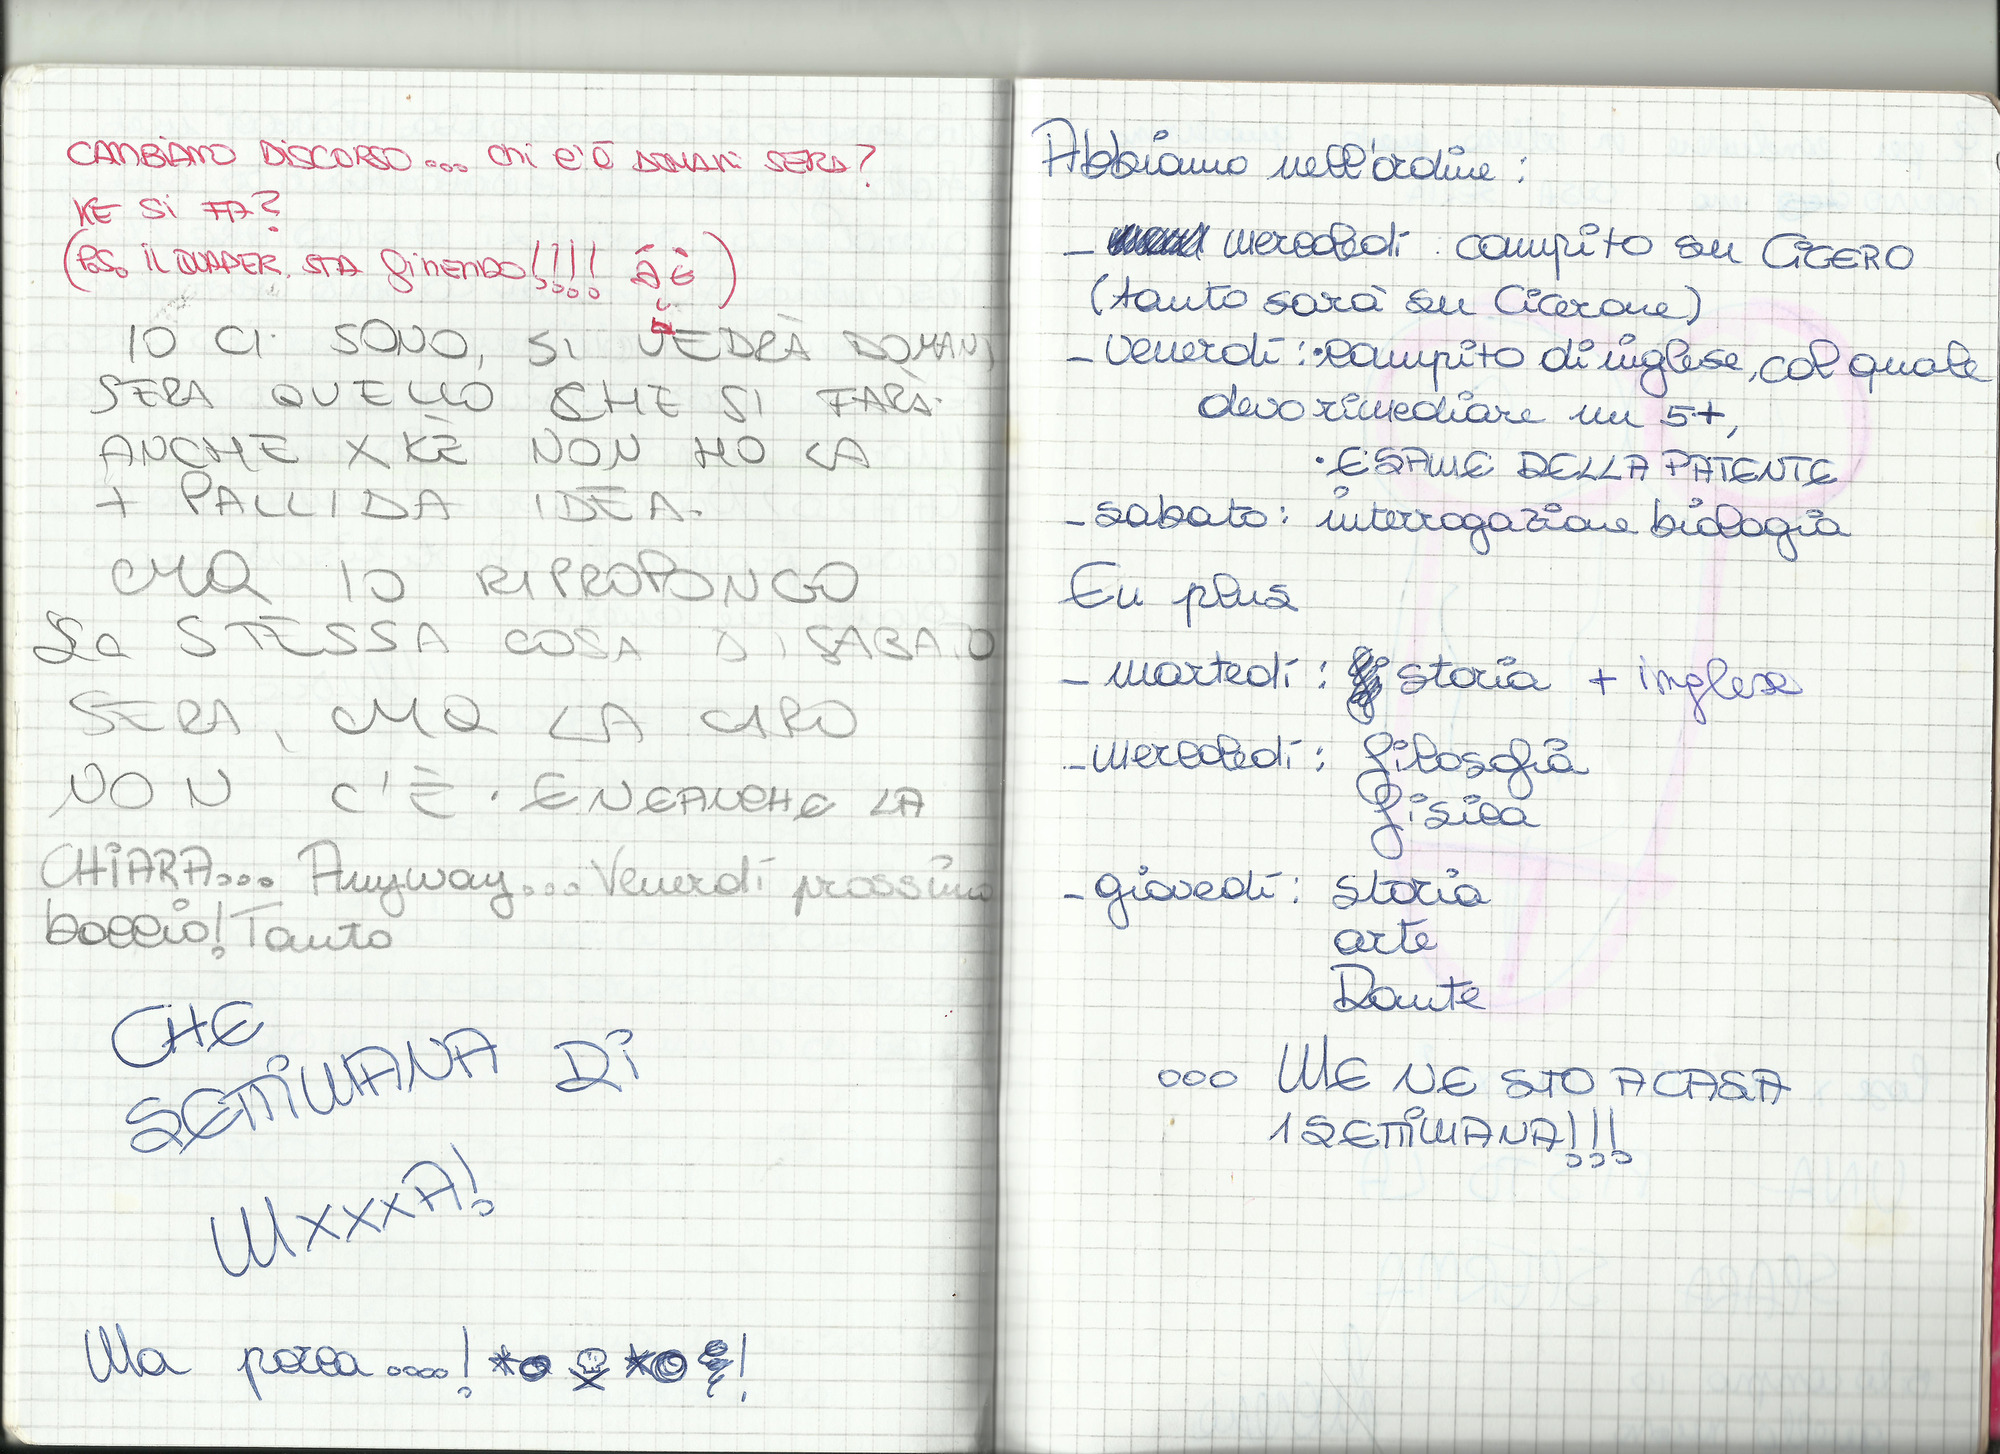 CAMBIAMO DISCORSO... chi c'è DOMANI SERA?
KE Si FA?
IL DIAPER STA finENDO!!!!
IO CI SONO, SI VEDRÀ DOMANI
SERA QUELLO CHE SI FARÀ.
ANCHE XKÈ NON HO LA
+ PALLIDA IDEA.
CMQ IO RIPROPONGO
La STESSA COSA DI SABATO
SERA, CMQ LA CAPO
NON C'È. E NEANCHE LA
CHIARA... Anyway... Venerdì prossimo
boccio! Tanto
CHE
SETTIMANA DI
MXXXA!
Ma porca ....! !
Abbiamo nell'ordine:
- mercoledì compito su CICERO
(tanto sarà su Cicerone)
- venerdì: • compito di inglese, col quale
devo rimediare un 5+,
• ESAME DELLA PATENTE
- sabato: interrogazione biologia
En plus
- martedì: storia + inglese
- mercoledì: filosofia
fisica
- giovedì: storia
arte
Dante
... ME NE STO A CASA
1 SETTIMANA!!!